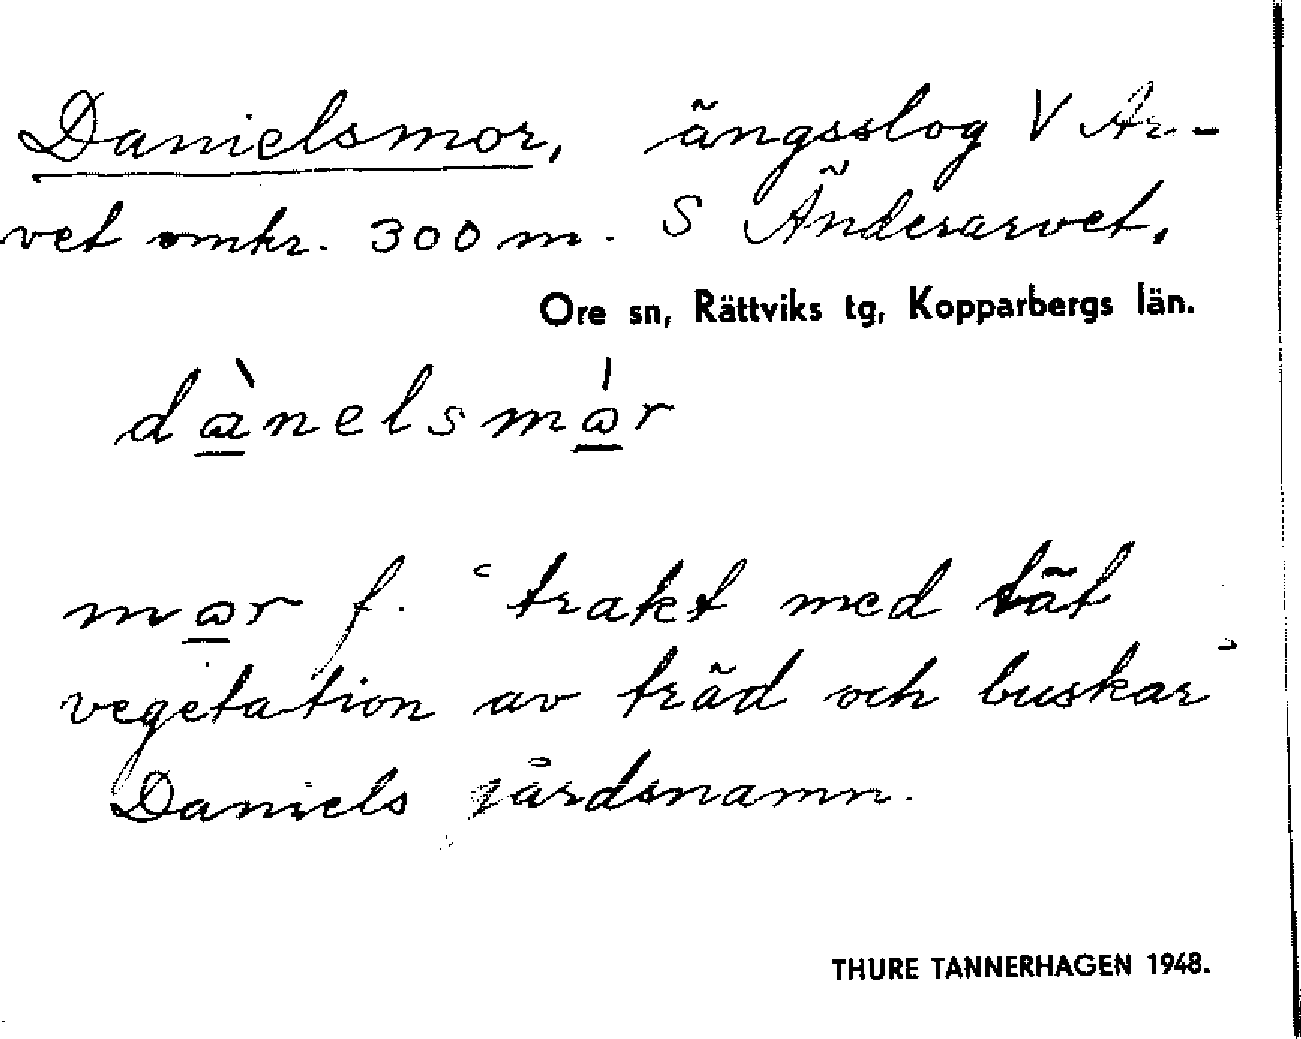 Danielsmor, ängsslog V Ar-
vet omkr. 300 m. S Änderarvet.
Ore sn, Rättviks tg, Kopparbergs län.
dànelsmór
mor f. ‘trakt med tät
vegetation av träd och buskar’
Daniels gårdsnamn.
THURE TANNERHAGEN 1948.